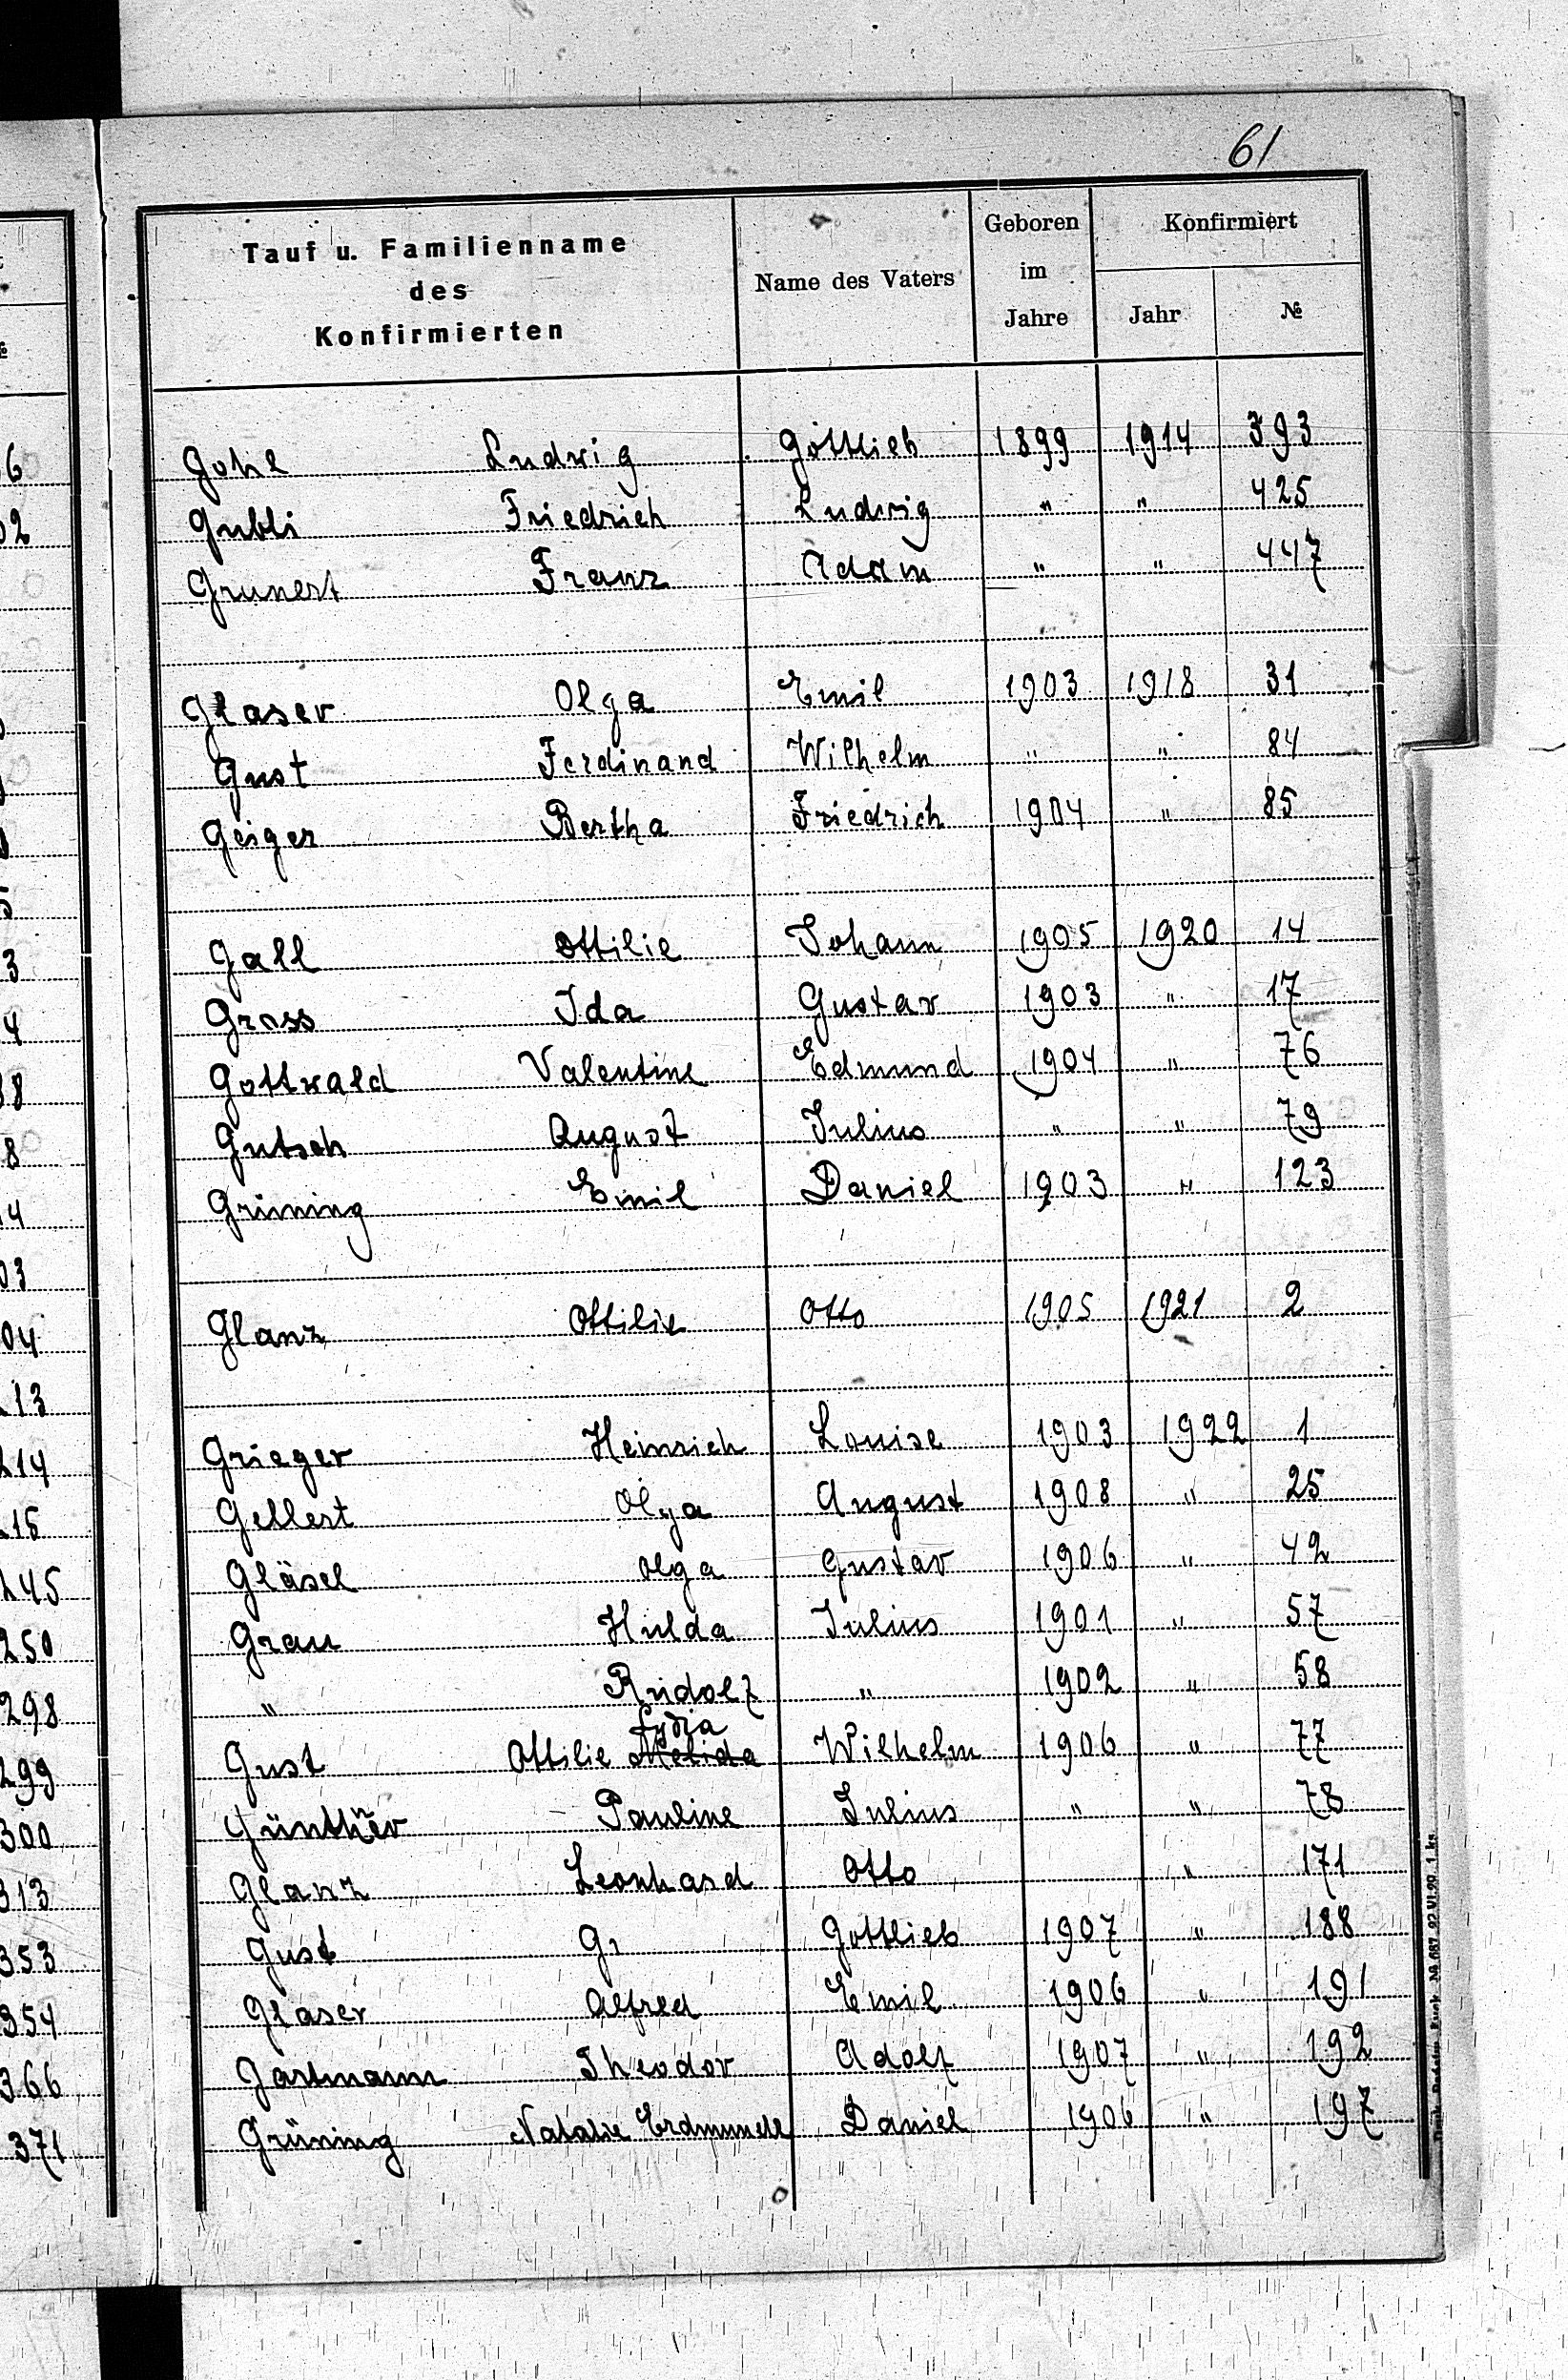 61
Tauf u. Familienname des Konfirmierten | Name des Vaters | Geboren im Jahre | Konfirmiert Jahr | №
Gohl Ludwig Gottlieb 1899 1914 393
Gubli Friedrich Ludwig " " 425
Grunert Franz Adam " " 447
Glaser Olga Emil 1903 1918 31
Gust Ferdinand Wilhelm " " 84
Geiger Bertha Friedrich 1904 " 85
Gall Ottilie Johann 1905 1920 14
Gross Ida Gustav 1903 " 17
Gottwald Valentine Edmund 1904 " 76
Gutsch August Julius " " 79
Grüning Emil Daniel 1903 " 123
Glanz Ottilie Otto 1905 1921 2
Grieger Heinrich Louise 1903 1922 1
Gellert Olga August 1908 " 25
Gläsel Olga Gustav 1906 " 42
Grau Hulda Julius 1901 " 57
" Rudolf " 1902 " 58
Lydia
Gust Ottilie Melida Wilhelm 1906 " 77
Günther Pauline Julius " " 78
Glanz Leonhard Otto " 171
Gust Gottlieb 1907 " 188
Glaser Alfred Emil 1906 " 191
Gartmann Theodor Adolf 1907 " 192
Grüning Natalie Daniel 1906 " 197